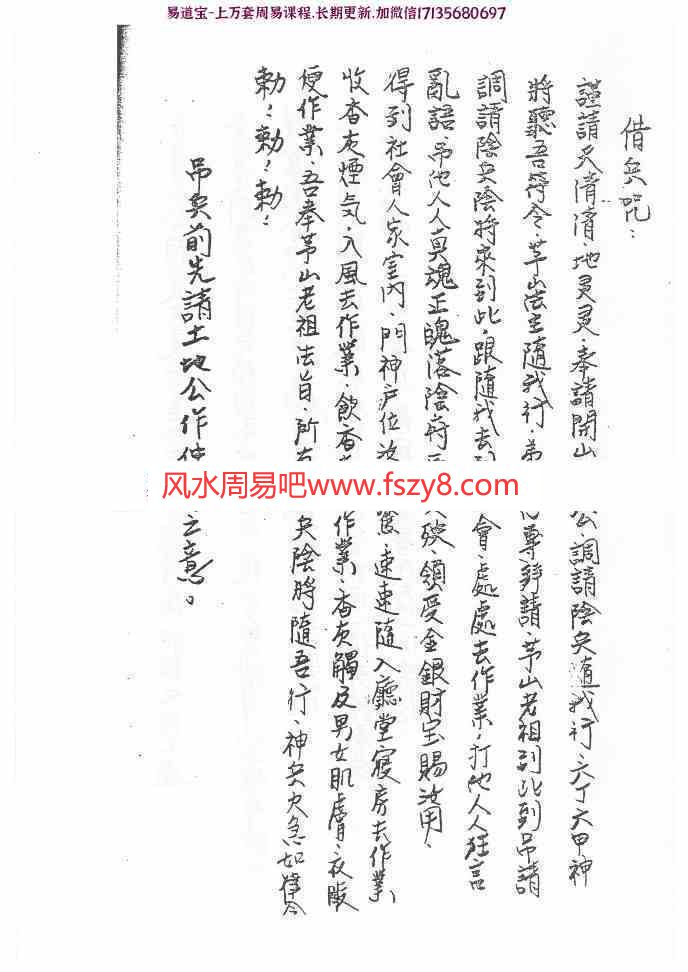 易道宝-上万套周易课程.长期更新.加微信17135680697
借兵咒：
謹請天清清、地灵灵、奉請開山 公、調請陰兵隨我行、六丁六甲神
將聽吾符令、茅山法主隨我行、弟 專拜請、茅山老祖到此到吊請
調請陰兵陰将來到此、跟隨我去 會、處處去作業、打他人人狂言
亂語、吊他人人真魂正魄落陰府 領受金銀財宝賜汝用、
得到社會人家室内、門神户位 速速隨入廳堂寝房去作業
收香灰煙気、入風去作業、飲香 作業、香灰觸及男女肌膚、衣
便作業、吾奉茅山老祖法旨、所有 兵陰將隨吾行、神兵火急如律令
勅：勅：勅：
吊兵前先請土地公作 之意。
风水周易吧www.fszy8.com